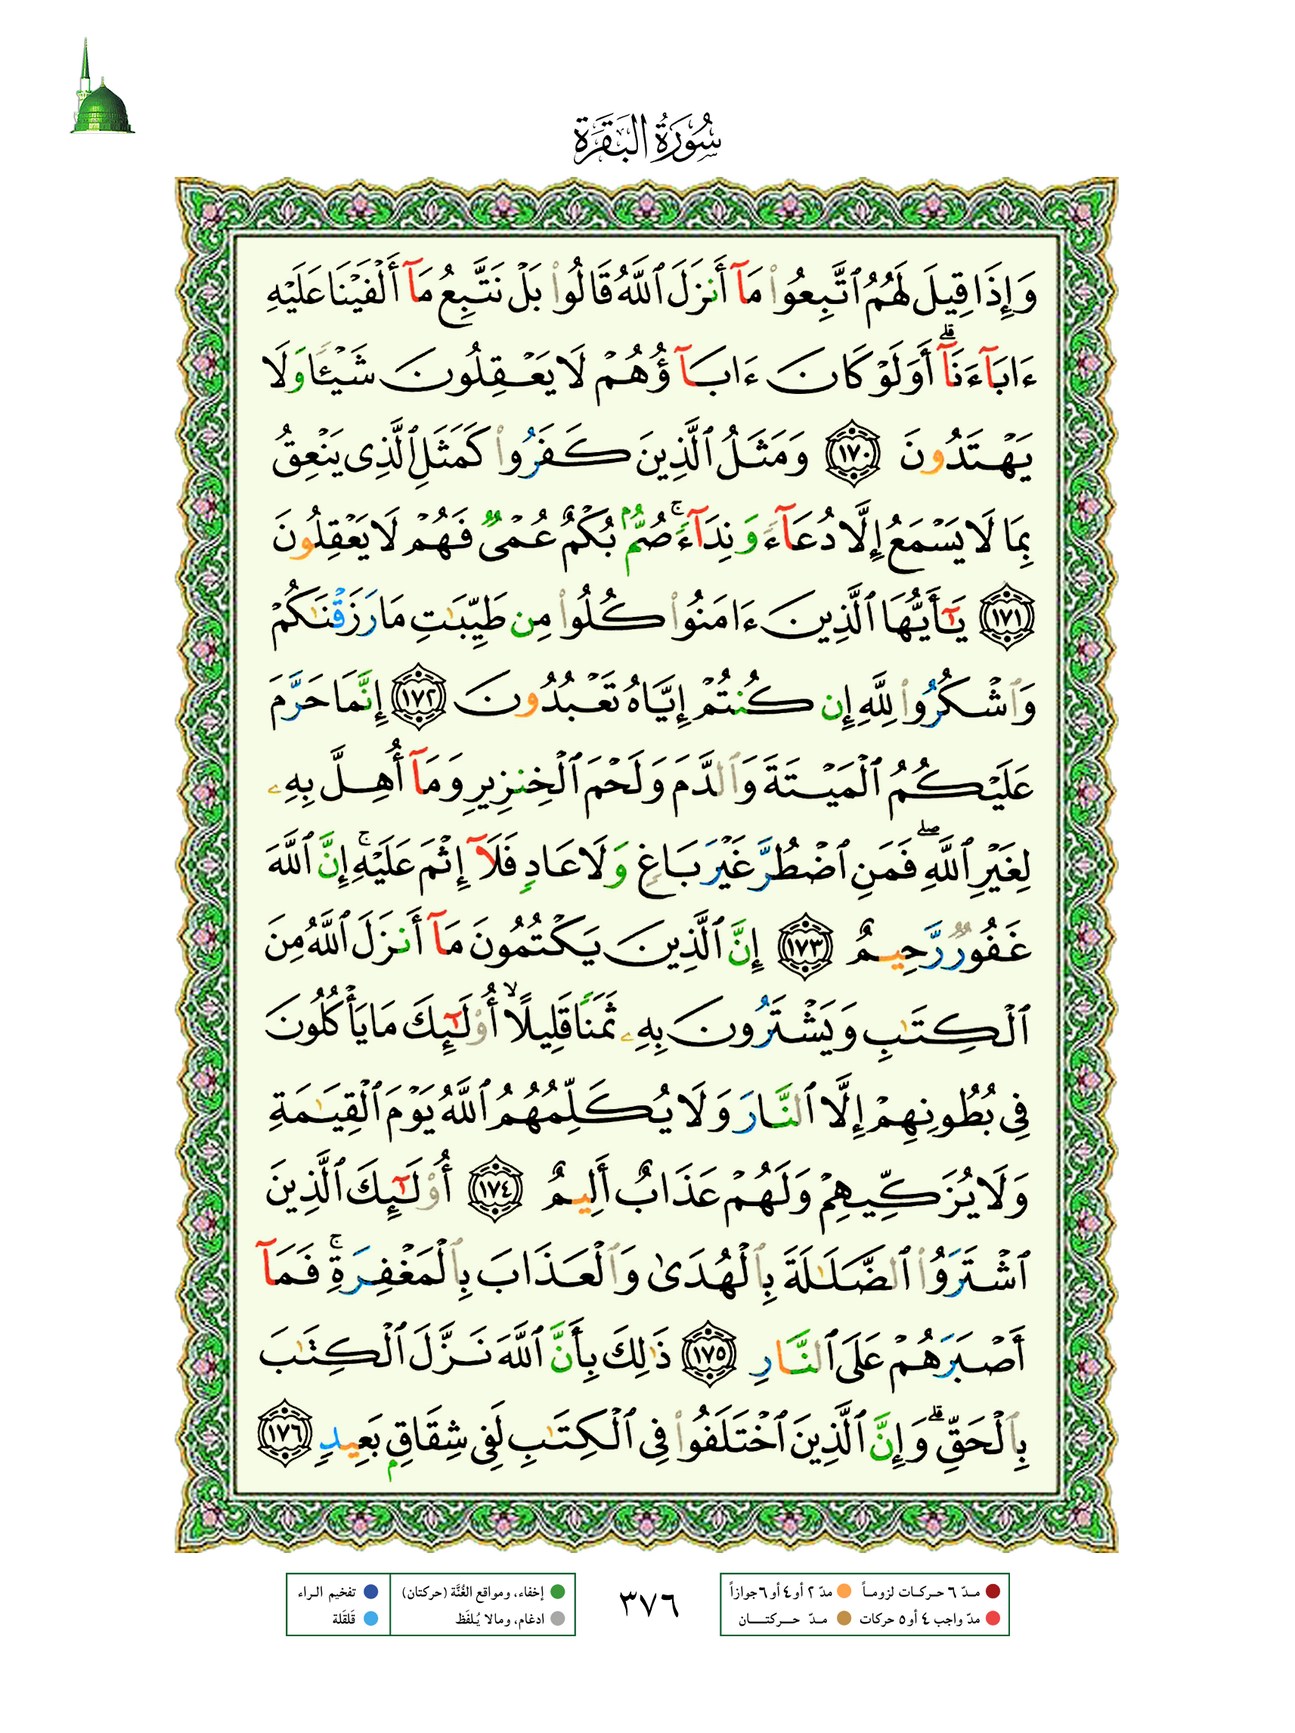 سُورَةُ البَقَرَة
وَإِذَا قِيلَ لَهُمُ ٱتَّبِعُوا۟ مَآ أَنزَلَ ٱللَّهُ قَالُوا۟ بَلْ نَتَّبِعُ مَآ أَلْفَيْنَا عَلَيْهِ
ءَابَآءَنَآ ۗ أَوَلَوْ كَانَ ءَابَآؤُهُمْ لَا يَعْقِلُونَ شَيْـًٔا وَلَا
يَهْتَدُونَ ١٧٠ وَمَثَلُ ٱلَّذِينَ كَفَرُوا۟ كَمَثَلِ ٱلَّذِى يَنْعِقُ
بِمَا لَا يَسْمَعُ إِلَّا دُعَآءً وَنِدَآءً ۚ صُمٌّۢ بُكْمٌ عُمْىٌ فَهُمْ لَا يَعْقِلُونَ
١٧١ يَـٰٓأَيُّهَا ٱلَّذِينَ ءَامَنُوا۟ كُلُوا۟ مِن طَيِّبَـٰتِ مَا رَزَقْنَـٰكُمْ
وَٱشْكُرُوا۟ لِلَّهِ إِن كُنتُمْ إِيَّاهُ تَعْبُدُونَ ١٧٢ إِنَّمَا حَرَّمَ
عَلَيْكُمُ ٱلْمَيْتَةَ وَٱلدَّمَ وَلَحْمَ ٱلْخِنزِيرِ وَمَآ أُهِلَّ بِهِۦ
لِغَيْرِ ٱللَّهِ ۖ فَمَنِ ٱضْطُرَّ غَيْرَ بَاغٍ وَلَا عَادٍ فَلَآ إِثْمَ عَلَيْهِ ۚ إِنَّ ٱللَّهَ
غَفُورٌ رَّحِيمٌ ١٧٣ إِنَّ ٱلَّذِينَ يَكْتُمُونَ مَآ أَنزَلَ ٱللَّهُ مِنَ
ٱلْكِتَـٰبِ وَيَشْتَرُونَ بِهِۦ ثَمَنًا قَلِيلًا ۙ أُو۟لَـٰٓئِكَ مَا يَأْكُلُونَ
فِى بُطُونِهِمْ إِلَّا ٱلنَّارَ وَلَا يُكَلِّمُهُمُ ٱللَّهُ يَوْمَ ٱلْقِيَـٰمَةِ
وَلَا يُزَكِّيهِمْ وَلَهُمْ عَذَابٌ أَلِيمٌ ١٧٤ أُو۟لَـٰٓئِكَ ٱلَّذِينَ
ٱشْتَرَوُا۟ ٱلضَّلَـٰلَةَ بِٱلْهُدَىٰ وَٱلْعَذَابَ بِٱلْمَغْفِرَةِ ۚ فَمَآ
أَصْبَرَهُمْ عَلَى ٱلنَّارِ ١٧٥ ذَٰلِكَ بِأَنَّ ٱللَّهَ نَزَّلَ ٱلْكِتَـٰبَ
بِٱلْحَقِّ ۗ وَإِنَّ ٱلَّذِينَ ٱخْتَلَفُوا۟ فِى ٱلْكِتَـٰبِ لَفِى شِقَاقٍۭ بَعِيدٍ ١٧٦
مـدّ ٦ حـركـات لزومـاً مدّ ٢ أو ٤ أو ٦ جوازاً
مدّ واجب ٤ أو ٥ حركات مـدّ حـــركتـــان
٣٧٦
إخفاء، ومواقع الغُنَّة (حركتان) تفخيم الـراء
ادغام، ومالا يُـلفَظ قلقلة